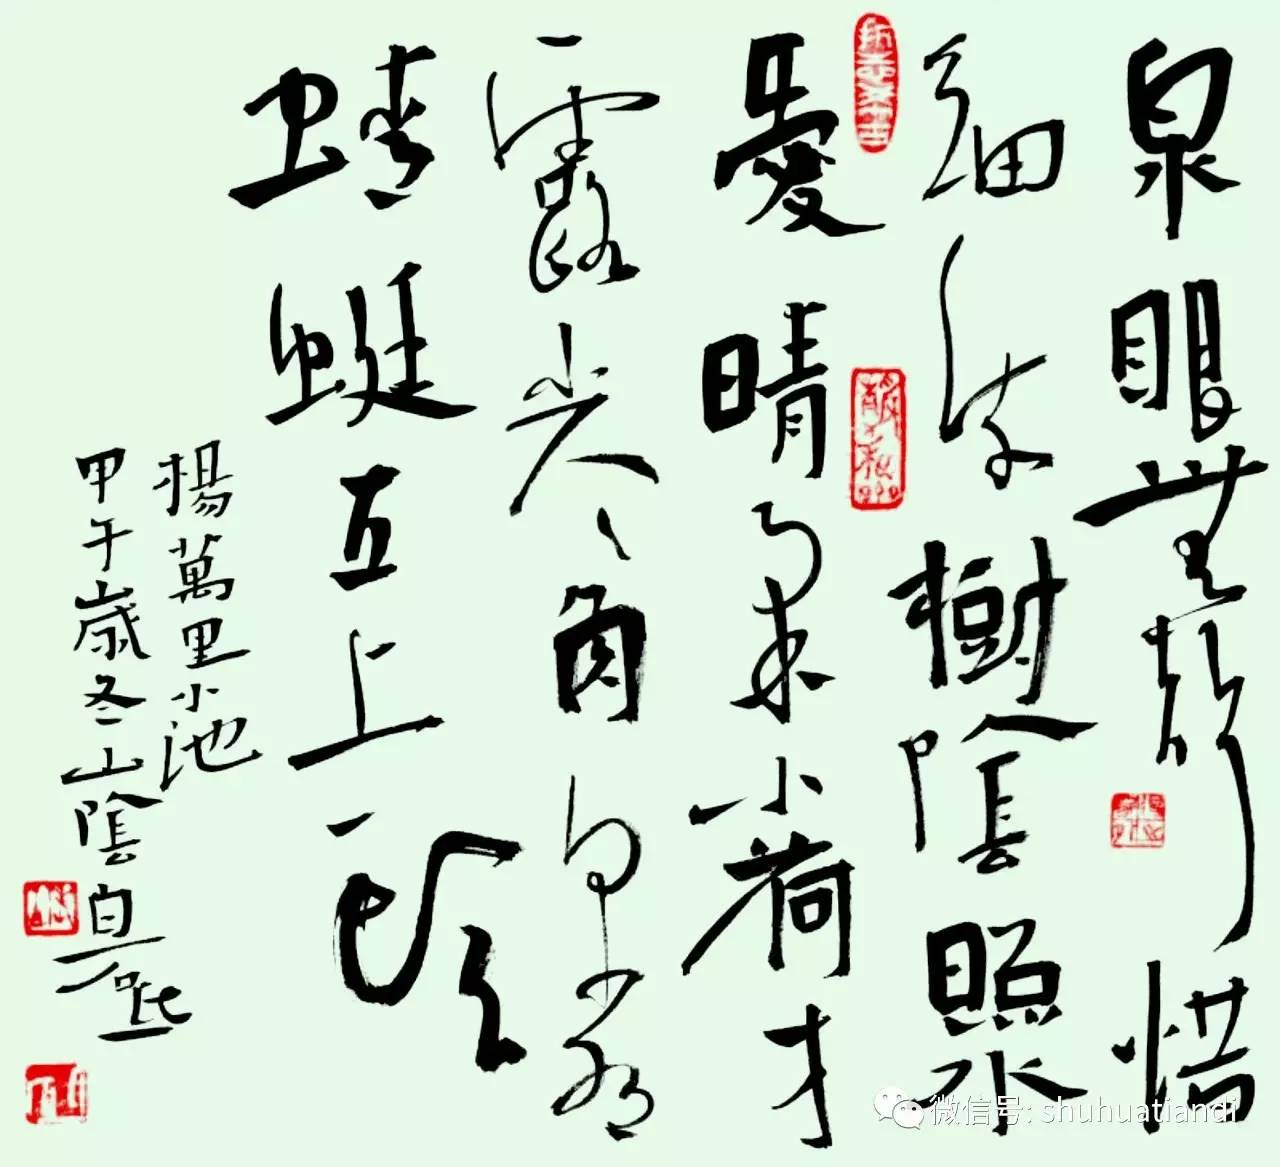 泉眼無聲惜
細流樹陰照水
愛晴柔小荷才
露尖尖角早有
蜻蜓立上頭
楊萬里小池
甲午歲冬山陰白
微信号: shuhuatiandi